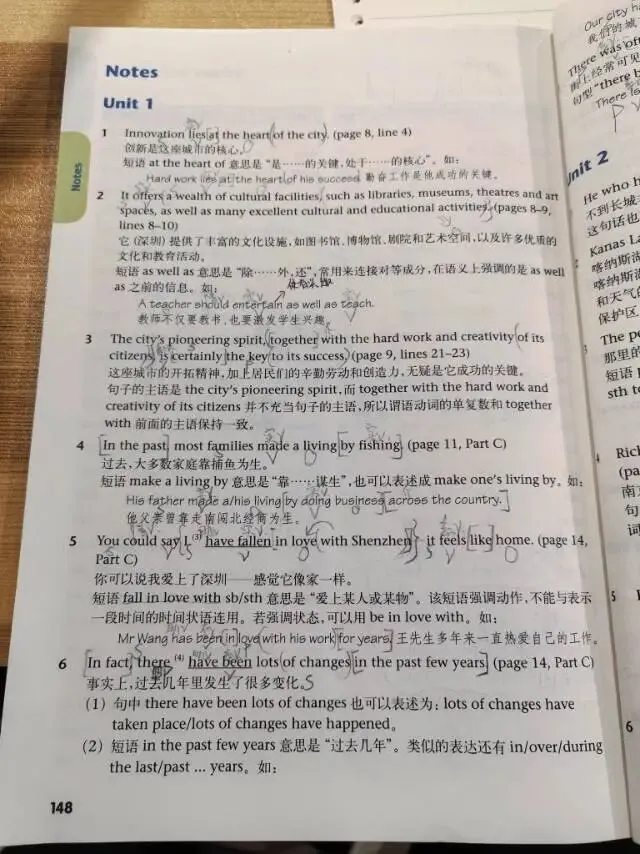 Notes
Unit 1
1 Innovation lies at the heart of the city. (page 8, line 4)
创新是这座城市的核心。
短语 at the heart of 意思是“是……的关键,处于……的核心”。如:
Hard work lies at the heart of his success. 勤奋工作是他成功的关键。
2 It offers a wealth of cultural facilities, such as libraries, museums, theatres and art
spaces, as well as many excellent cultural and educational activities. (pages 8–9,
lines 8–10)
它(深圳)提供了丰富的文化设施,如图书馆、博物馆、剧院和艺术空间,以及许多优质的
文化和教育活动。
短语 as well as 意思是“除……外,还”,常用来连接对等成分,在语义上强调的是 as well
as 之前的信息。如:
A teacher should entertain as well as teach.
教师不仅要教书,也要激发学生兴趣。
3 The city's pioneering spirit, together with the hard work and creativity of its
citizens, is certainly the key to its success. (page 9, lines 21–23)
这座城市的开拓精神,加上居民们的辛勤劳动和创造力,无疑是它成功的关键。
句子的主语是 the city's pioneering spirit,而 together with the hard work and
creativity of its citizens 并不充当句子的主语,所以谓语动词的单复数和 together
with 前面的主语保持一致。
4 In the past, most families made a living by fishing. (page 11, Part C)
过去,大多数家庭靠捕鱼为生。
短语 make a living by 意思是“靠……谋生”,也可以表述成 make one's living by。如:
His father made a/his living by doing business across the country.
他父亲曾靠走南闯北经商为生。
5 You could say I (3) have fallen in love with Shenzhen – it feels like home. (page 14,
Part C)
你可以说我爱上了深圳——感觉它像家一样。
短语 fall in love with sb/sth 意思是“爱上某人或某物”。该短语强调动作,不能与表示
一段时间的时间状语连用。若强调状态,可以用 be in love with。如:
Mr Wang has been in love with his work for years. 王先生多年来一直热爱自己的工作。
6 In fact, there (4) have been lots of changes in the past few years. (page 14, Part C)
事实上,过去几年里发生了很多变化。
(1) 句中 there have been lots of changes 也可以表述为: lots of changes have
taken place/lots of changes have happened。
(2) 短语 in the past few years 意思是“过去几年”。类似的表达还有 in/over/during
the last/past ... years。如:
148
Notes
Our city ha
我们的城
There was oft
街上经常可见
句型“there b
There is
Unit 2
He who h
不到长城
这句话也
Kanas La
喀纳斯湖
喀纳斯湖
和天气的
保护区
The pe
那里的
短语
sth to
Rich
(pa
南京
句
词
5
6